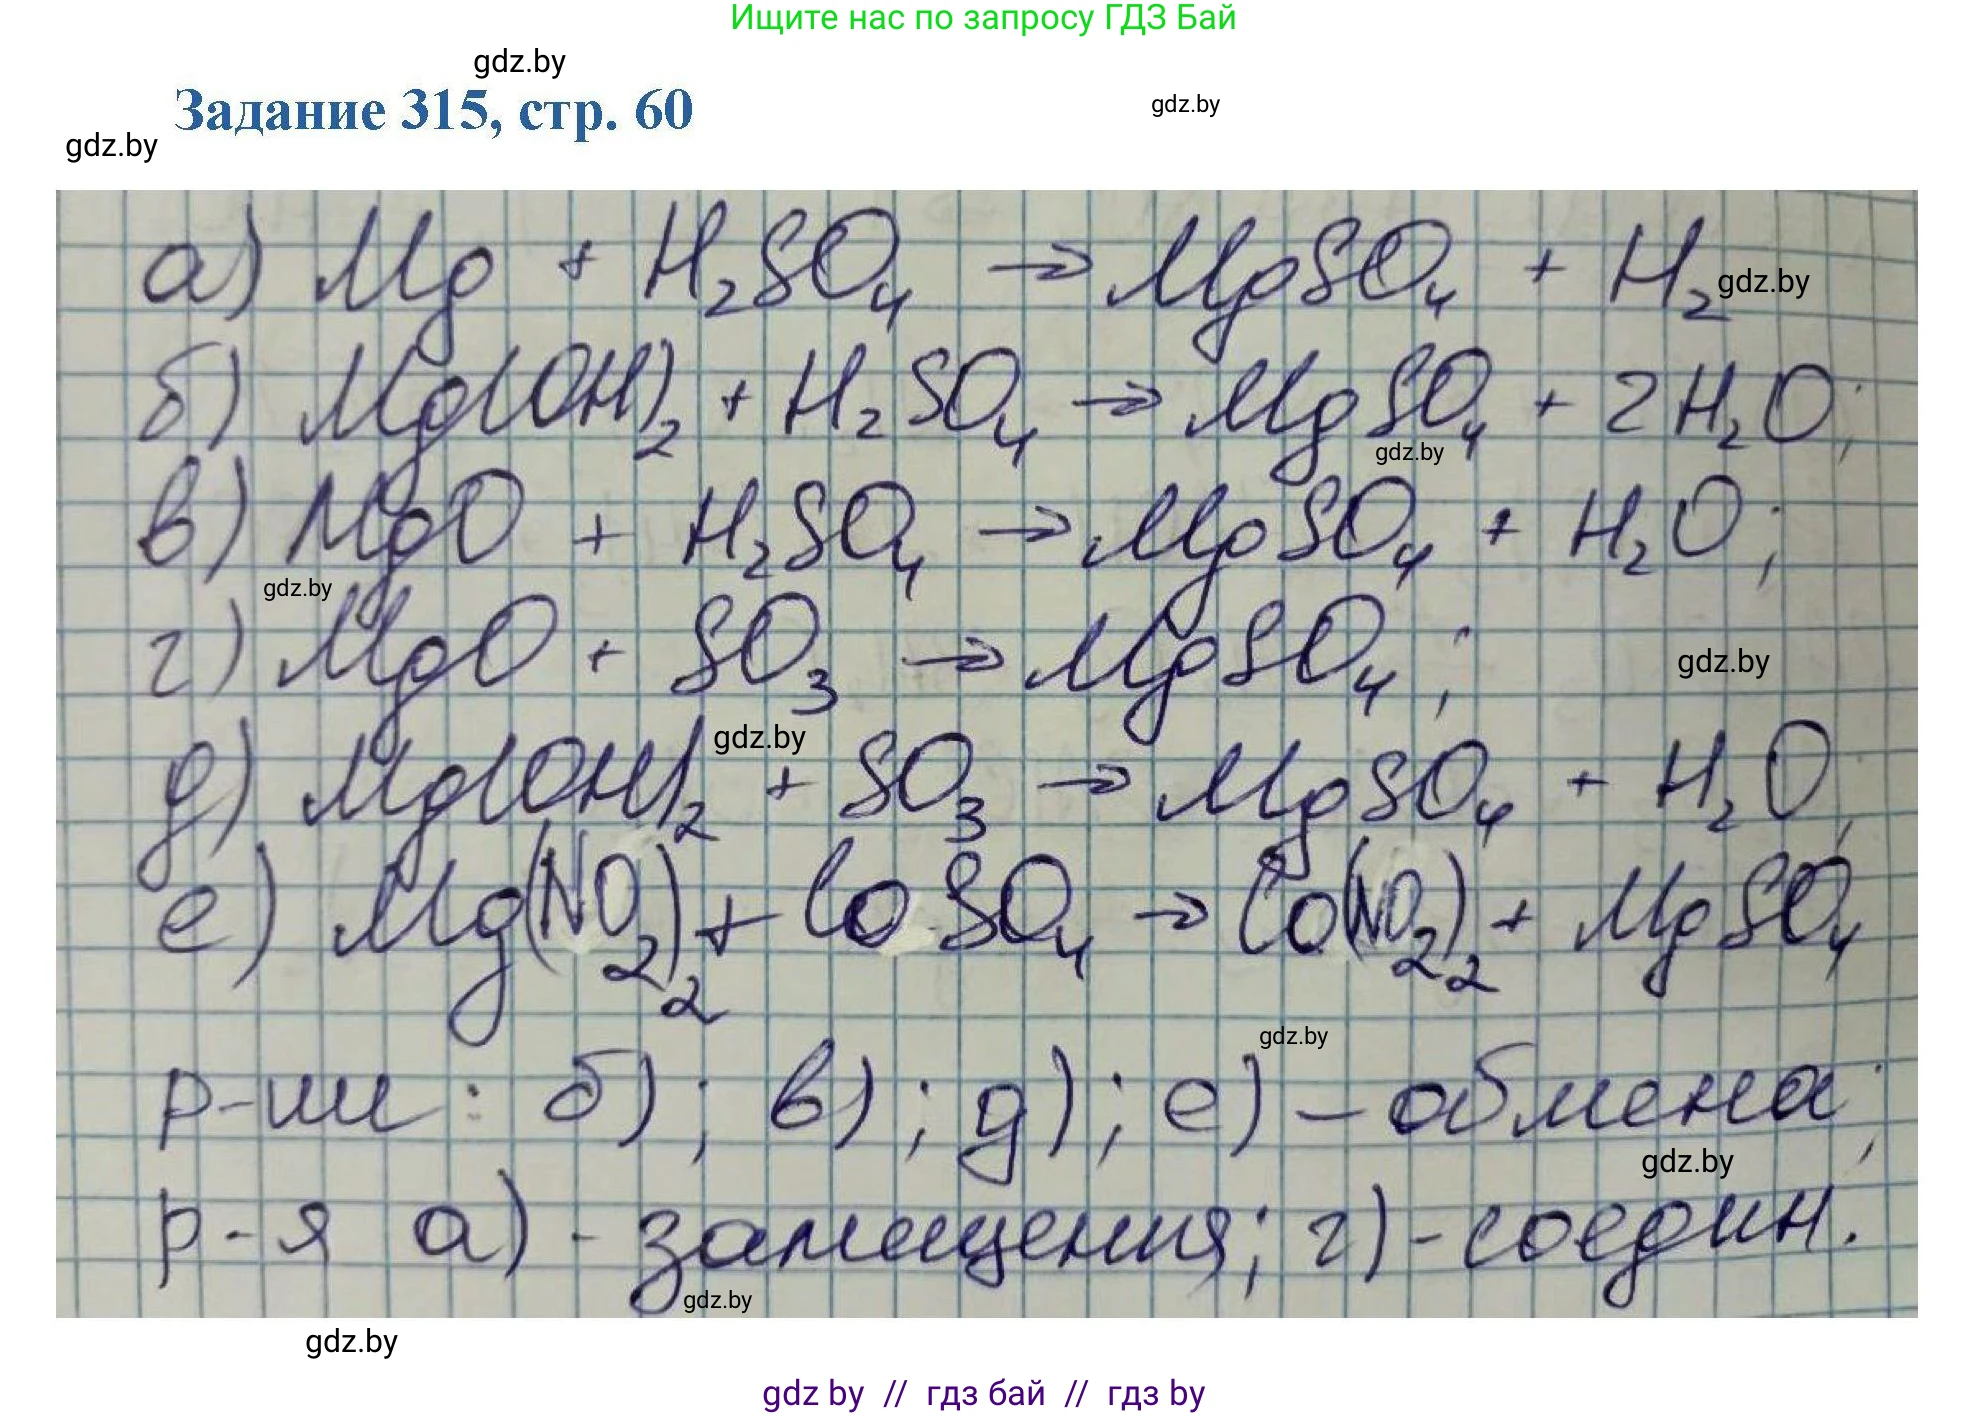 Ищите нас по запросу ГДЗ Бай
gdz.by
Задание 315, стр. 60
gdz.by
gdz.by
а) Mg + H₂SO₄ → MgSO₄ + H₂
gdz.by
б) Mg(OH)₂ + H₂SO₄ → MgSO₄ + 2H₂O;
gdz.by
в) MgO + H₂SO₄ → MgSO₄ + H₂O;
gdz.by
г) MgO + SO₃ → MgSO₄;
gdz.by
gdz.by
д) Mg(OH)₂ + SO₃ → MgSO₄ + H₂O;
е) Mg(NO₂)₂ + CoSO₄ → Co(NO₂)₂ + MgSO₄
gdz.by
р-ции: б); в); д); е) – обмена;
gdz.by
р-я а) - замещения; г) - соедин.
gdz.by
gdz.by
gdz by // гдз бай // гдз by